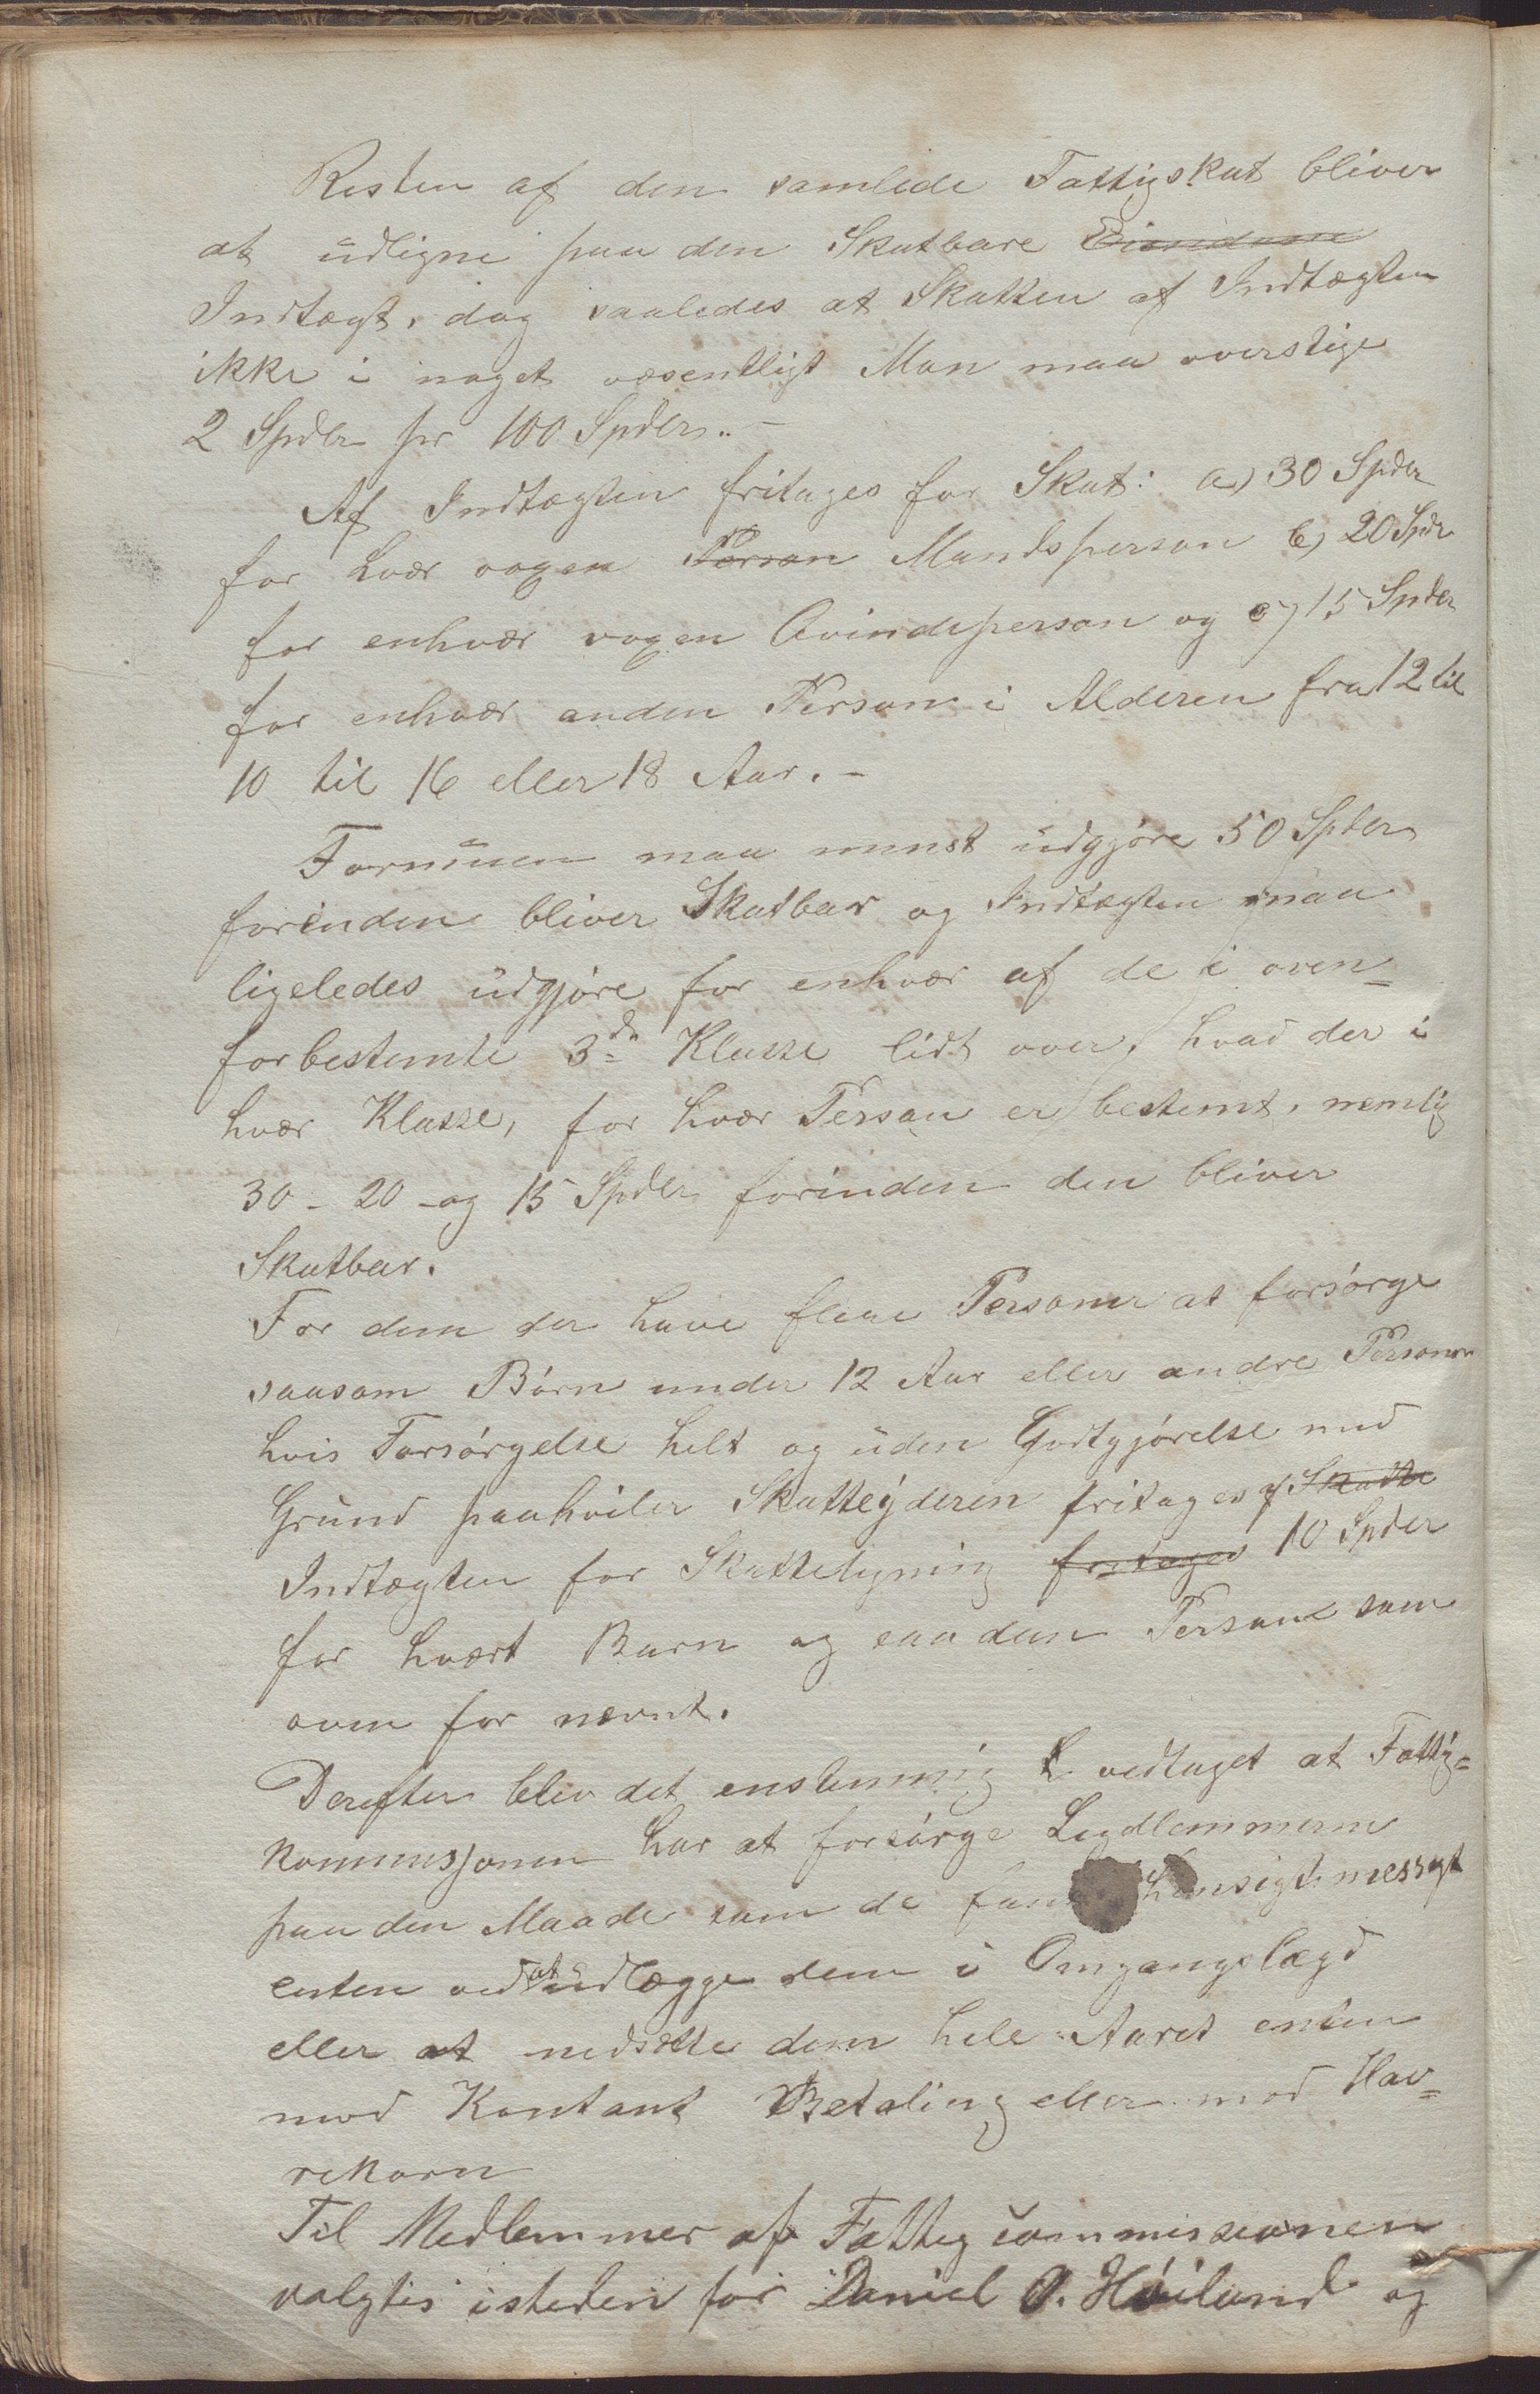 Resten af den samlede Fattigskat bliver
at üdligne paa den Skatbare Eiendom
Indtægt, dog saaledes at Skatten af Indtægten
ikke i noget væsentligt Mon maa overstige
2 Spdlr pr 100 Spdlr. -
Af Indtægten fritages for Skat: a) 30 Spdlr
for hvær voxen Person Mandsperson b) 20 Spdlr
for enhvær voxen Qvindeperson og c) 15 Spdlr
for enhvær anden Person i Alderen fra 12 til
10 til 16 eller 18 Aar. -
Formüen maa minst üdgjøre 50 Spdlr
forinden bliver Skatbar og Indtægten maa
ligeledes üdgjøre for enhvær af de i oven=
forbestemte 3de Klasse lidt over, hvad der i
hvær Klasse, for hvær Person er bestemt, nemlig
30 - 20 - og 15 Spdlr forinden den bliver
Skatbar.
For dem der have flere Personer at forsørge
saasom Børn under 12 Aar eller andre Personer
hvis Forsørgelse helt og üden Godtgjørelse med
Grund paahviler Skatteÿderen fritages af Skatte
Indtægten for Skatteligning fritages 10 Spdlr
for hvært Barn og saadan Person som
oven for nævnt.
Derefter blev det enstemmig vedtaget at Fattig=
kommisjonen har at forsørge Legdlemmerne
paa den Maade som de hensigtsmessigt
enten ved at üdlægge dem i Omgangslægd
eller at nedsætte dem hele Aaret enten
mod Kontant Betaling eller mod Hav=
rekorn
Til Medlemmer af Fattigcommissionen
valgtes isteden for Daniel O. Høiland og